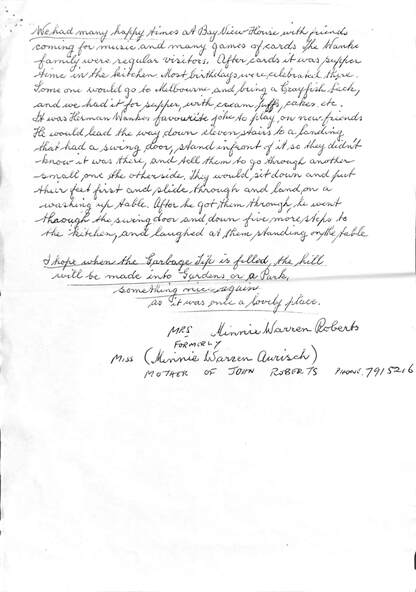 We had many happy times at Bay View House, with friends
coming for music and many games of cards The Wanke
family were regular visitors. After cards it was supper
time in the kitchen. Most birthdays were celebrated there.
Some one would go to Melbourne and bring a Crayfish back,
and we had it for supper, with cream puffs, cakes. etc.
It was Herman Wankes favourite joke to play, on new friends
He would lead the way down eleven stairs to a landing
that had a swing door, stand infront of it so they didn't
know it was there, and tell them to go through another
small one the otherside. They would, sit down and put
their feet first and slide through and land, on a
washing up table. After he got them through, he went
through the swing door and down five more steps to
the kitchen, and laughed at them standing on the table
I hope when the Garbage Tip is filled, the hill
will be made into Gardens or a Park,
something nice again
as it was once a lovely place.
MRS Minnie Warren Roberts
FORMERLY
MISS (Minnie Warren Aurisch)
MOTHER OF JOHN ROBERTS PHONE. 7915216